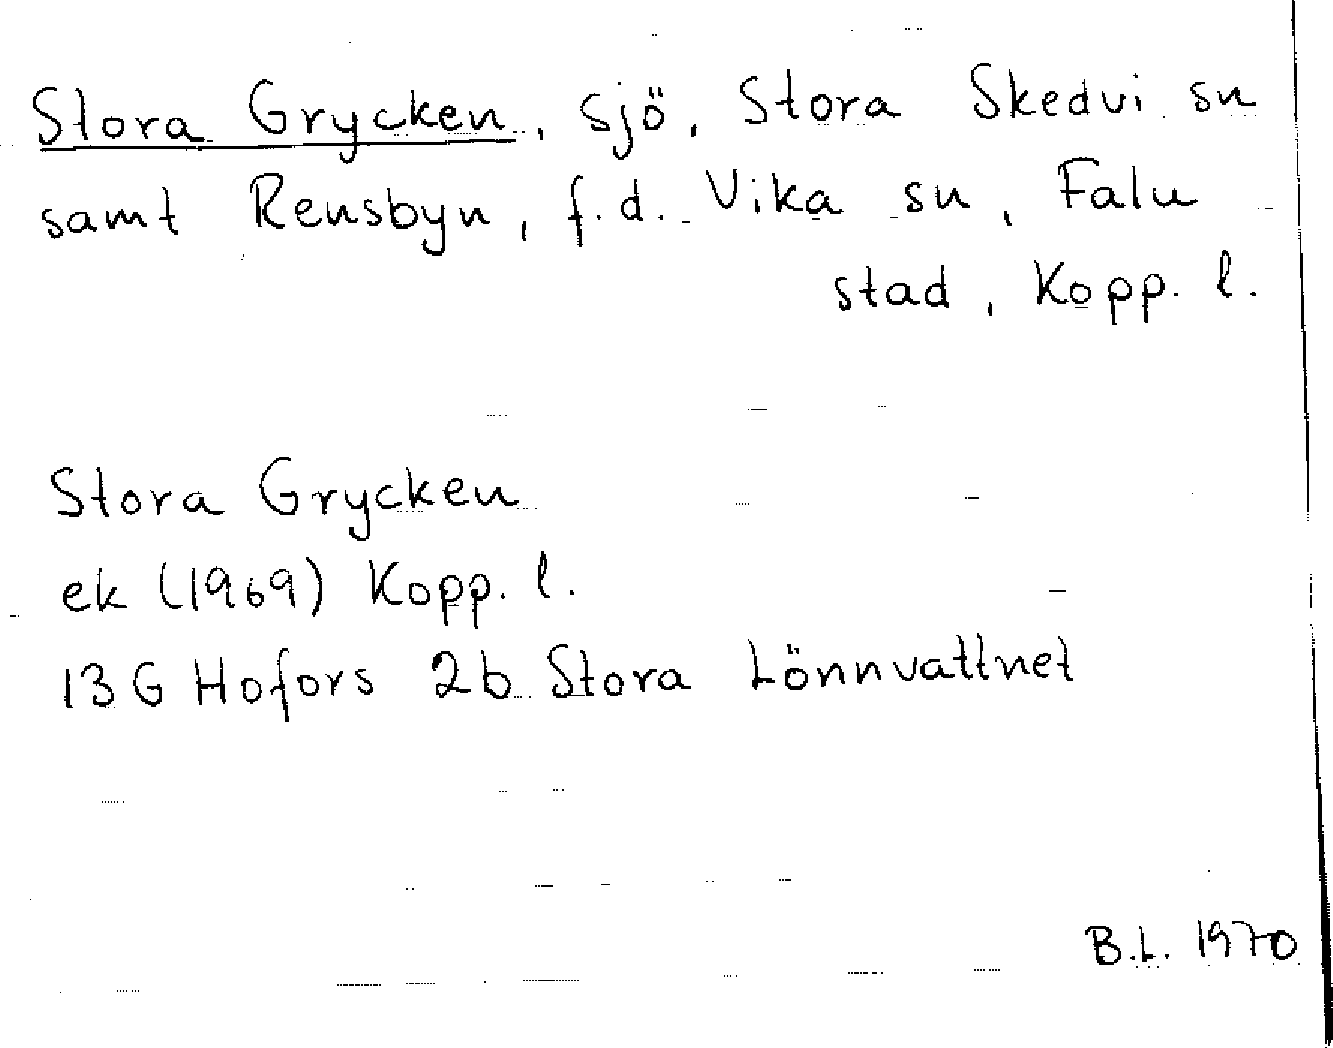 Stora Grycken, sjö, Stora Skedvi sn
samt Rensbyn, f.d. Vika sn, Falu
stad, Kopp. l.
Stora Grycken
ek (1969) Kopp. l.
13G Hofors 2b Stora Lönnvattnet
B.L. 1970